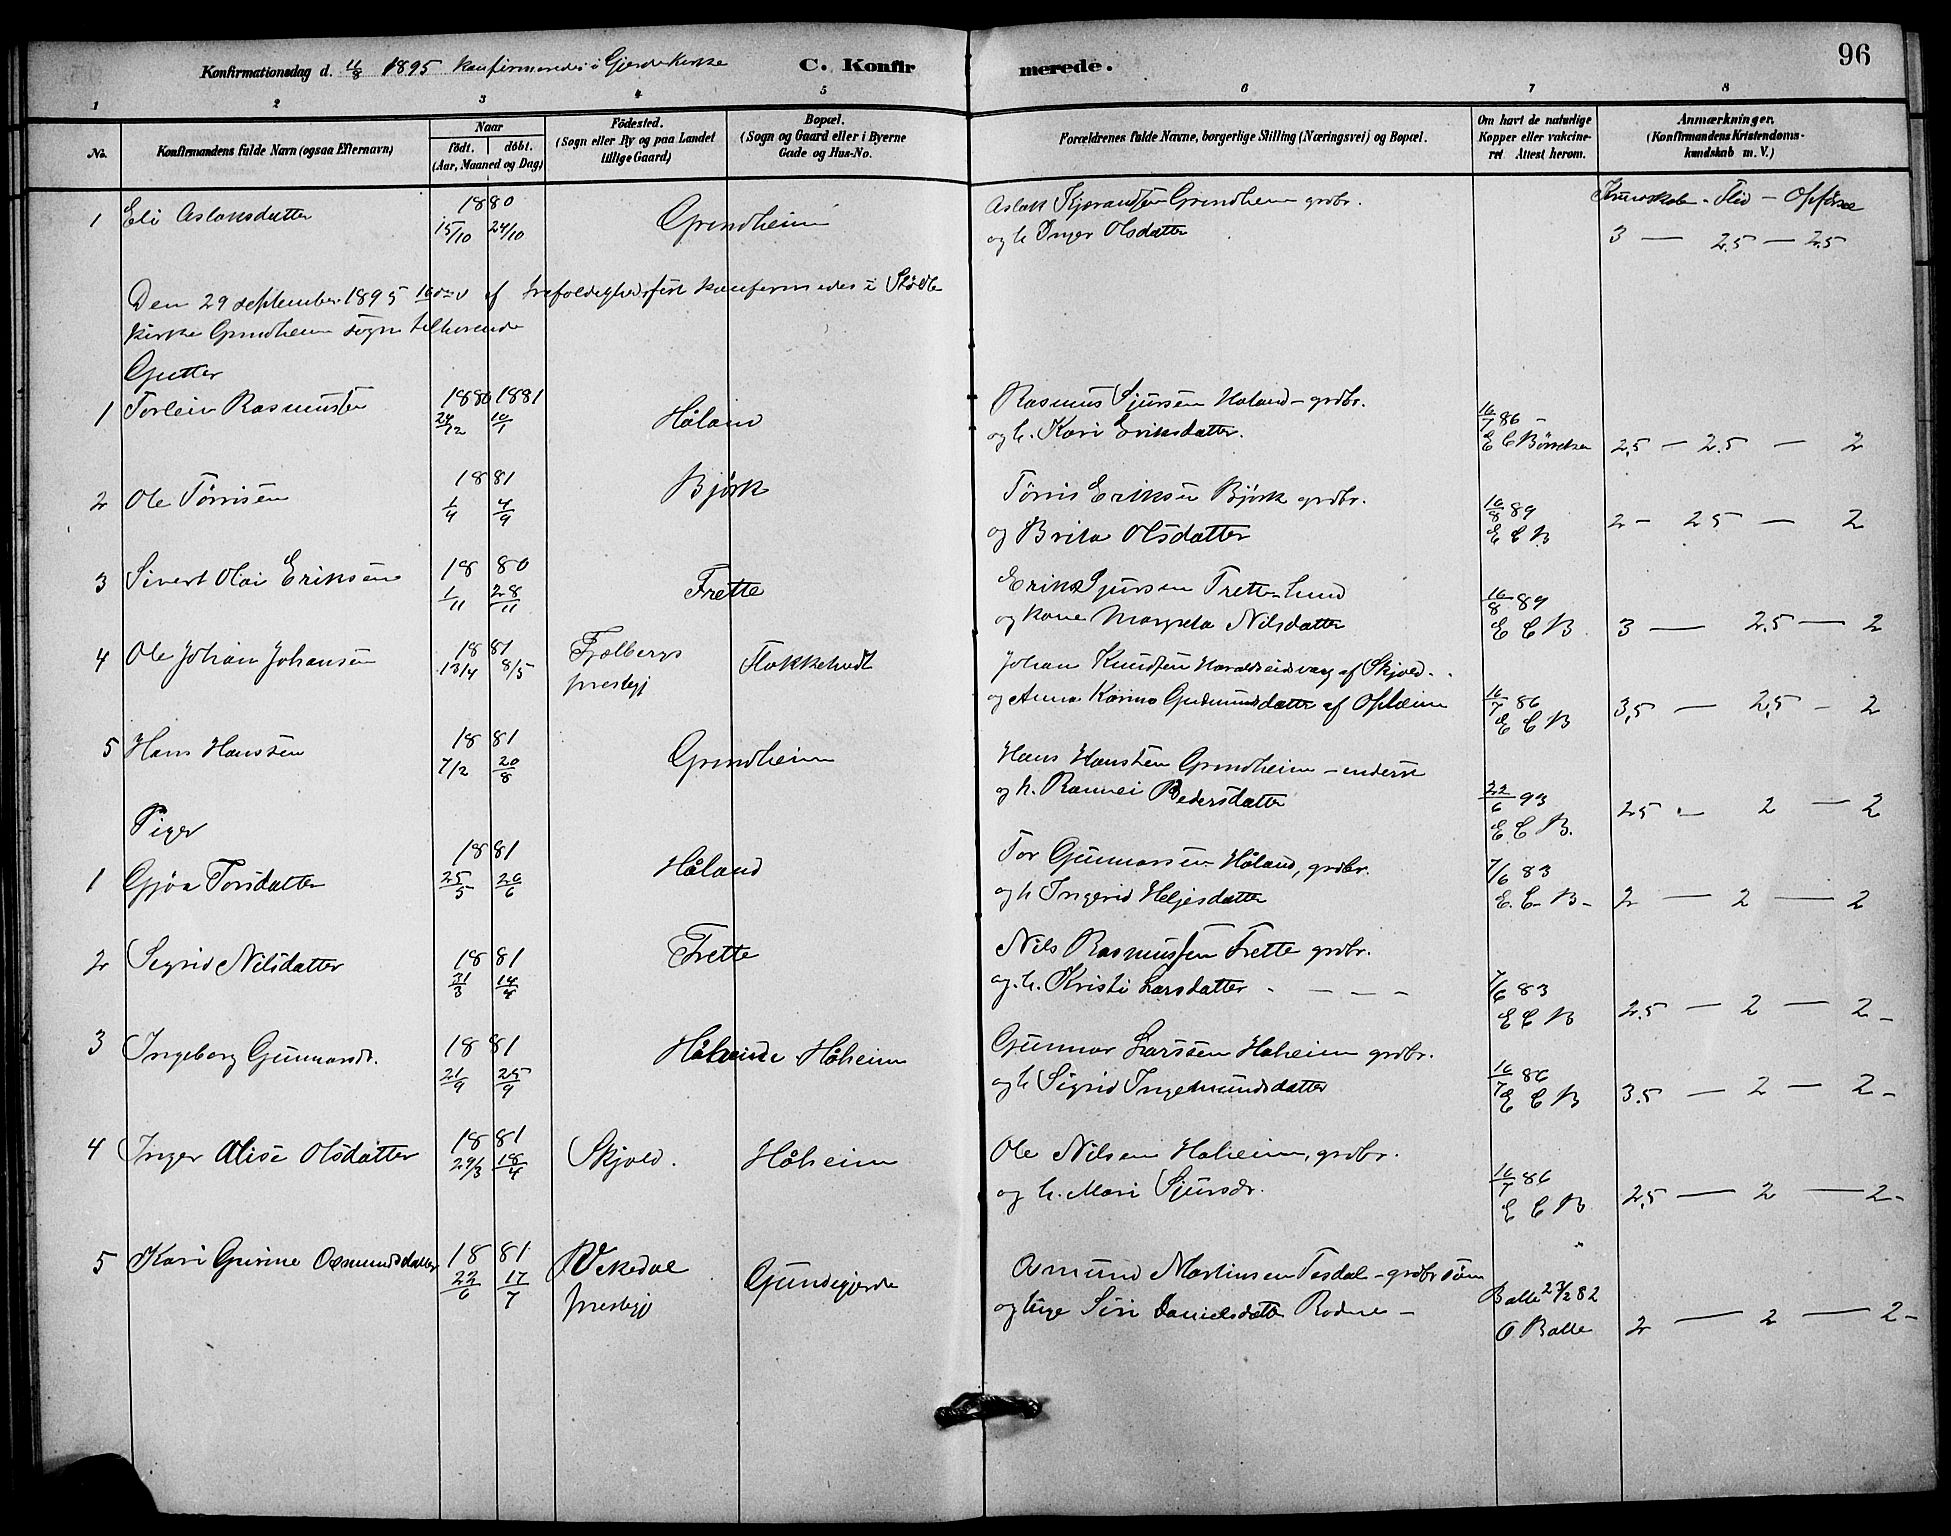 96
Konfirmationsdag d. 11/8 1895 konfirmeredes i Gjerde kirke C. Konfirmerede.
1 2 3 4 5 6 7 8
No. Konfirmandens fulde Navn (ogsaa Efternavn) Naar födt. döbt. (Aar, Maaned og Dag) Födested. (Sogn eller By og paa Landet tillige Gaard) Bopæl. (Sogn og Gaard eller i Byerne Gade og Hus-No. Forældrenes fulde Navne, borgerlige Stilling (Næringsvei) og Bopæl. Om havt de naturlige Kopper eller vakcineret Attest herom. Anmærkninger. (Konfirmandens Kristendomskundskab m. V.)
Kunskab - Flid - Opførse
1 Eli Aslaksdatter 1880 15/10 24/10 Grindheim Aslak Grindheim grdbr.
og h. Inger Olsdatter 3 — 2.5 — 2.5
Den 29 september 1895 16de s. af trefoldighedsfest konfirmeredes i Skjolde
kirke Grindheim sogn tilhørende
Gutter
1 Torlein Rasmussen 1880 1881 24/12 10/1 Håland Rasmus Sjursen Haland - grdbr.
og h. Kari Eriksdatter. 16/7 86 E C 2,5 — 2.5 — 2
2 Ole Tørrisen 1881 1/4 4/9 Bjørk Tørris Eriksen Bjørk grdbr.
og Brita Olsdatter 16/8 89 E C B 2 - 25 — 2
3 Sivert Olai Eriksen 1880 1/11 28/11 Frette Erik Sjursen Frette-
og kone Margreta Nilsdatter 16/8 89 E C B 3 — 2,5 — 2
4 Ole Johan Johansen 1881 13/4 8/5 Fjælbergs prestegj Flokketvedt Johan Knudsen af Skjold.
og Anna Karina Gudmundsdatter af Ølen 16/7 86 E C B 3,5 — 2,5 - 2
5 Hans Hanssen 1881 7/2 20/8 Grindheim Hans Hanssen Grindheim -
og h. Rannei Pedersdatter 22/6 93 E. C B. 25 - 2 — 2
Piger
1 Gjøa Torsdatter 1881 25/5 26/6 Håland Tor Gunnarsen Håland, grdbr.
og h Ingerid Heljesdatter 7/6 83 E. C- B- 2 — 2 — 2
2 Sigrid Nilsdatter 1881 31/3 14/4 Frette Nils Rasmussen Frette grdbr.
og h. Kristi Larsdatter - — — — 7/6 83 E C B 2.5 — 2 — 2 -
3 Ingeborg Gunnarsdr. 1881 21/9 25/9 Håheim Gunnar Larssen Haheim grdbr.
og h Sigrid Ingemundsdatter 16/7 86 E C B 3.5 — 2 — 2 -
4 Inger Alise Olsdatter 1881 29/3 18/4 Skjold. Håheim Ole Nilsen Haheim, grdbr.
og h. Mari Sjursdr. 16/7 86 E C B 2,5 — 2 — 2 -
5 Kari Gurine Osmundsdatter 1881 22/6 17/7 Vikedal prestegj Gundegjerde Osmund Martinsen Tesdal - grdbr søn
og pige Siri Danielsdatter - Balle 27/2 82 O Balle 2 — 2 — 2 -